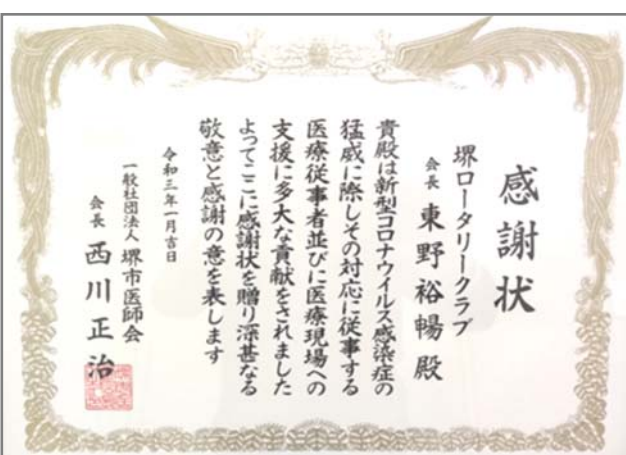 感謝状
堺ロータリークラブ
会長 東野裕暢殿
貴殿は新型コロナウイルス感染症の
猛威に際しその対応に従事する
医療従事者並びに医療現場への
支援に多大な貢献をされました
よってここに感謝状を贈り深甚なる
敬意と感謝の意を表します
令和三年一月吉日
一般社団法人 堺市医師会
会長 西川正治